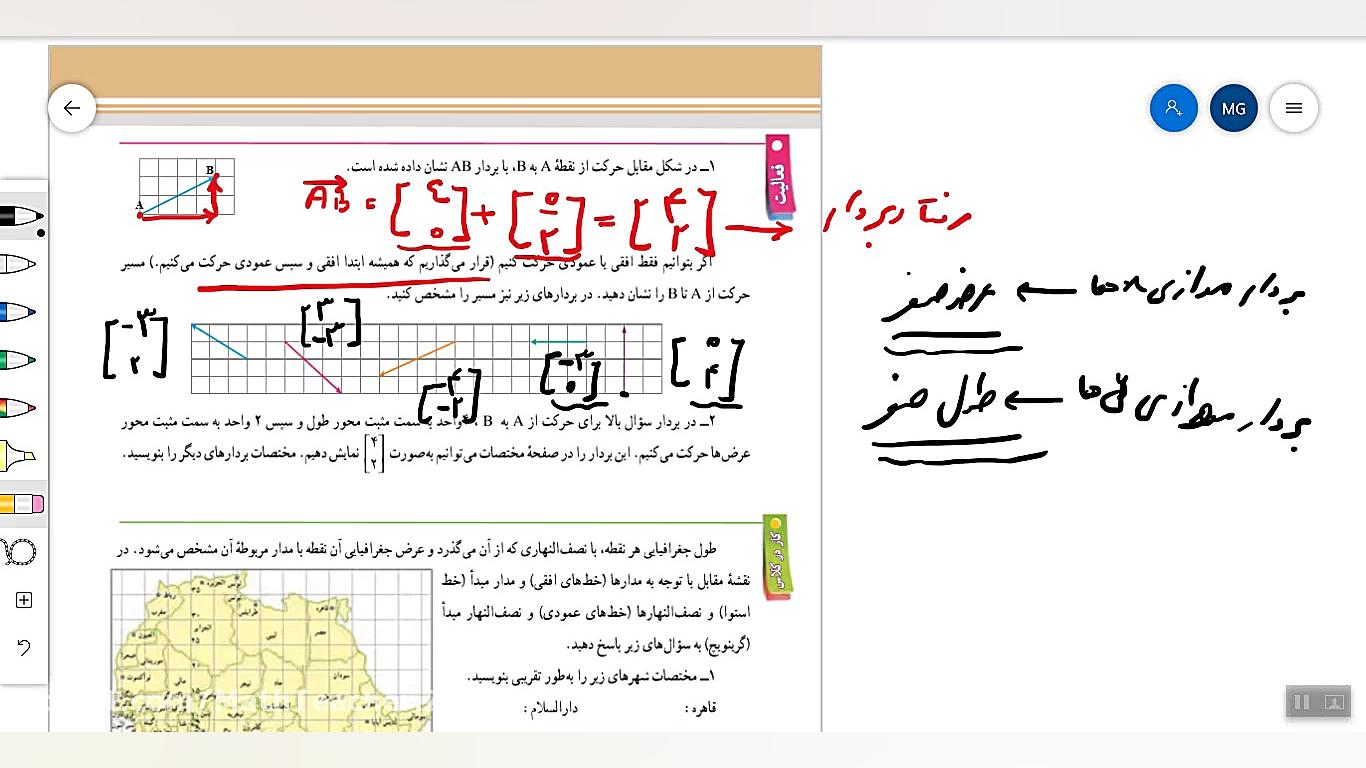 MG
فعالیت
۱ــ در شکل مقابل حرکت از نقطهٔ A به B، با بردار AB نشان داده شده است.
B
A
AB = [۴ ۰] + [۰ ۲] = [۴ ۲] → رفتار بردار
اگر بتوانیم فقط افقی یا عمودی حرکت کنیم (قرار می‌گذاریم که همیشه ابتدا افقی و سپس عمودی حرکت می‌کنیم.) مسیر
حرکت از A تا B را نشان دهید. در بردارهای زیر نیز مسیر را مشخص کنید.
بردار موازی x ها ← عرض صفر
[-۳ ۲] [۳ -۳] [-۴ -۲] [-۳ ۰] [۰ ۴]
بردار موازی y ها ← طول صفر
۲ــ در بردار سؤال بالا برای حرکت از A به B، ۴ واحد به سمت مثبت محور طول و سپس ۲ واحد به سمت مثبت محور
عرض‌ها حرکت می‌کنیم. این بردار را در صفحهٔ مختصات می‌توانیم به‌صورت [۴ ۲] نمایش دهیم. مختصات بردارهای دیگر را بنویسید.
کار در کلاس
طول جغرافیایی هر نقطه، با نصف‌النهاری که از آن می‌گذرد و عرض جغرافیایی آن نقطه با مدار مربوطهٔ آن مشخص می‌شود. در
نقشهٔ مقابل با توجه به مدارها (خط‌های افقی) و مدار مبدأ (خط
استوا) و نصف‌النهارها (خط‌های عمودی) و نصف‌النهار مبدأ
(گرینویچ) به سؤال‌های زیر پاسخ دهید.
۱ــ مختصات شهرهای زیر را به‌طور تقریبی بنویسید.
قاهره : دارالسلام :